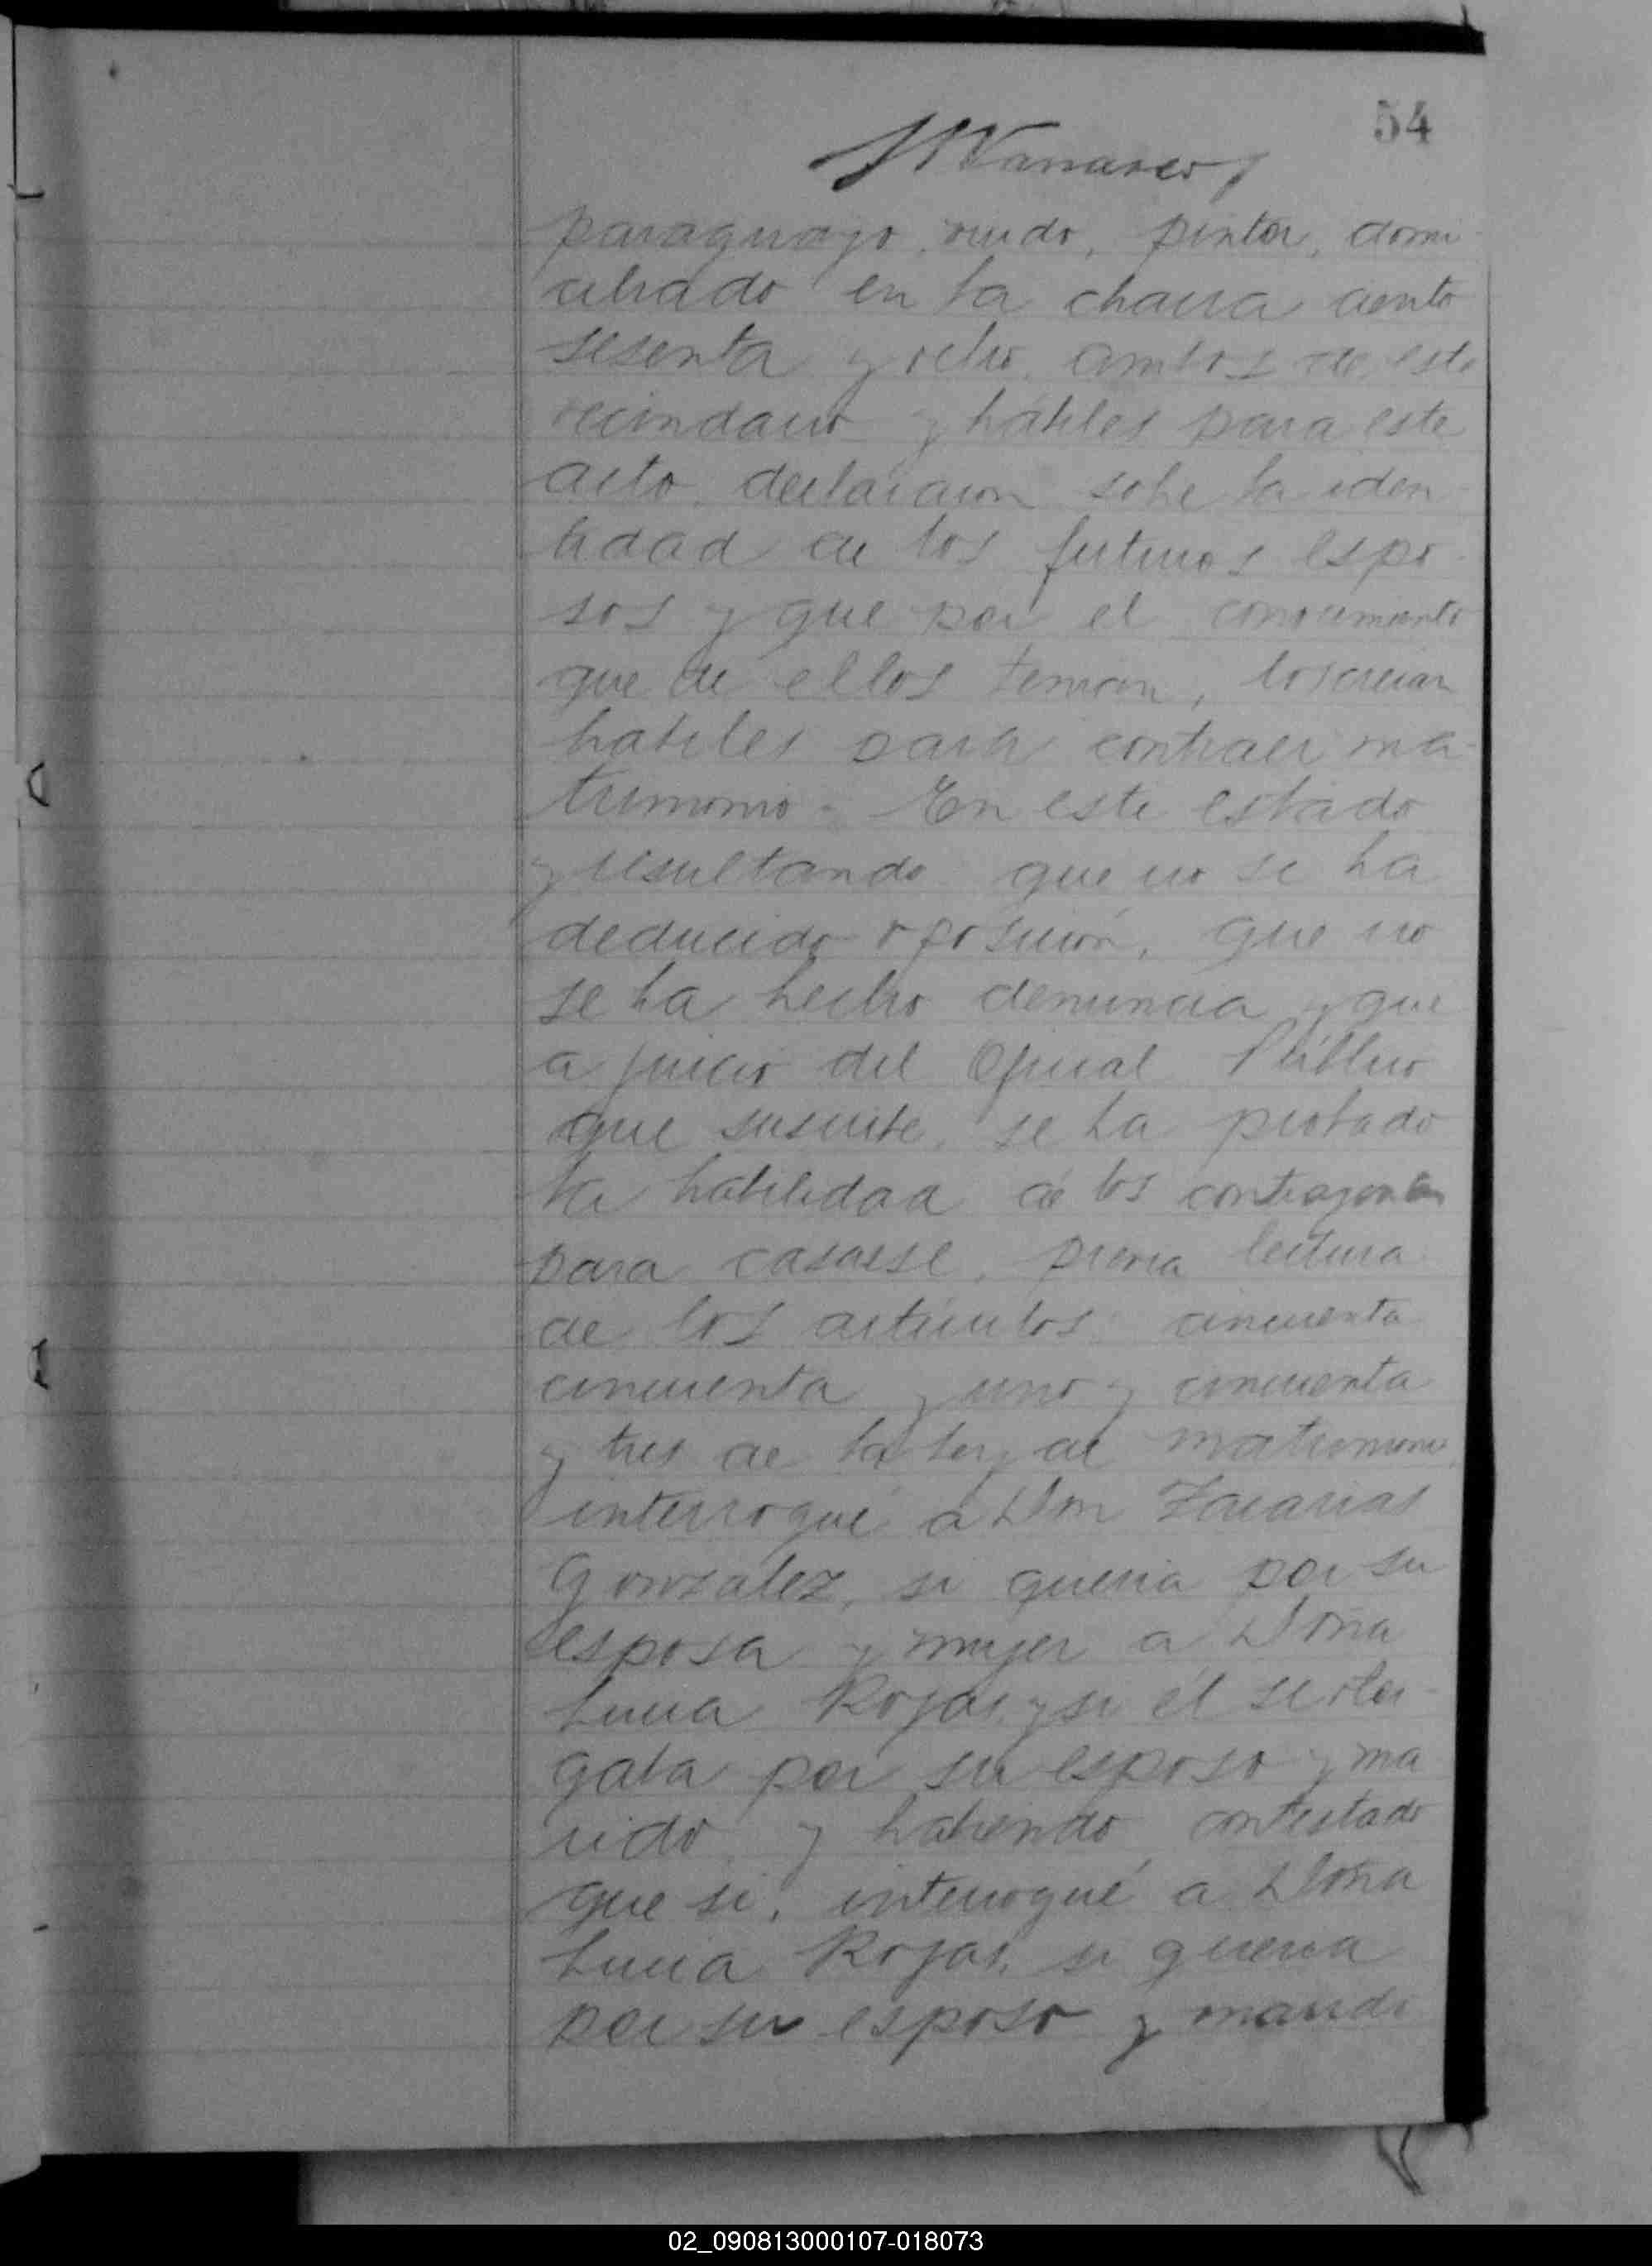 54
paraguayo, viudo, pintor, domi
ciliado en la chacra ciento
sesenta y ocho, ambos de este
vecindario y hábiles para este
acto, declararon sobe la iden
tidad de los futuros espo-
sos y que por el conocimiento
que de ellos tenian, los creian
habiles para contraer ma-
trimonio - En este estado
y resultando que no se ha
deducido oposición, que no
se ha hecho denuncia y que
a juicio del Oficial Público
que suscribe, se ha probado
la habilidad de los contrayentes
para casarse, previa lectura
de los artículos cincuenta
cincuenta y uno y cincuenta
y tres de la ley de matrimonio
interrogué a Don Zacarias
González, si queria por su
esposa y mujer a Doña
Lucia Rojas y si él se otor-
gaba por su esposo y ma
rido y habiendo contestado
que sí, interrogué a Doña
Lucia Rojas, si queria
por su esposo y marido
02_090813000107-018073